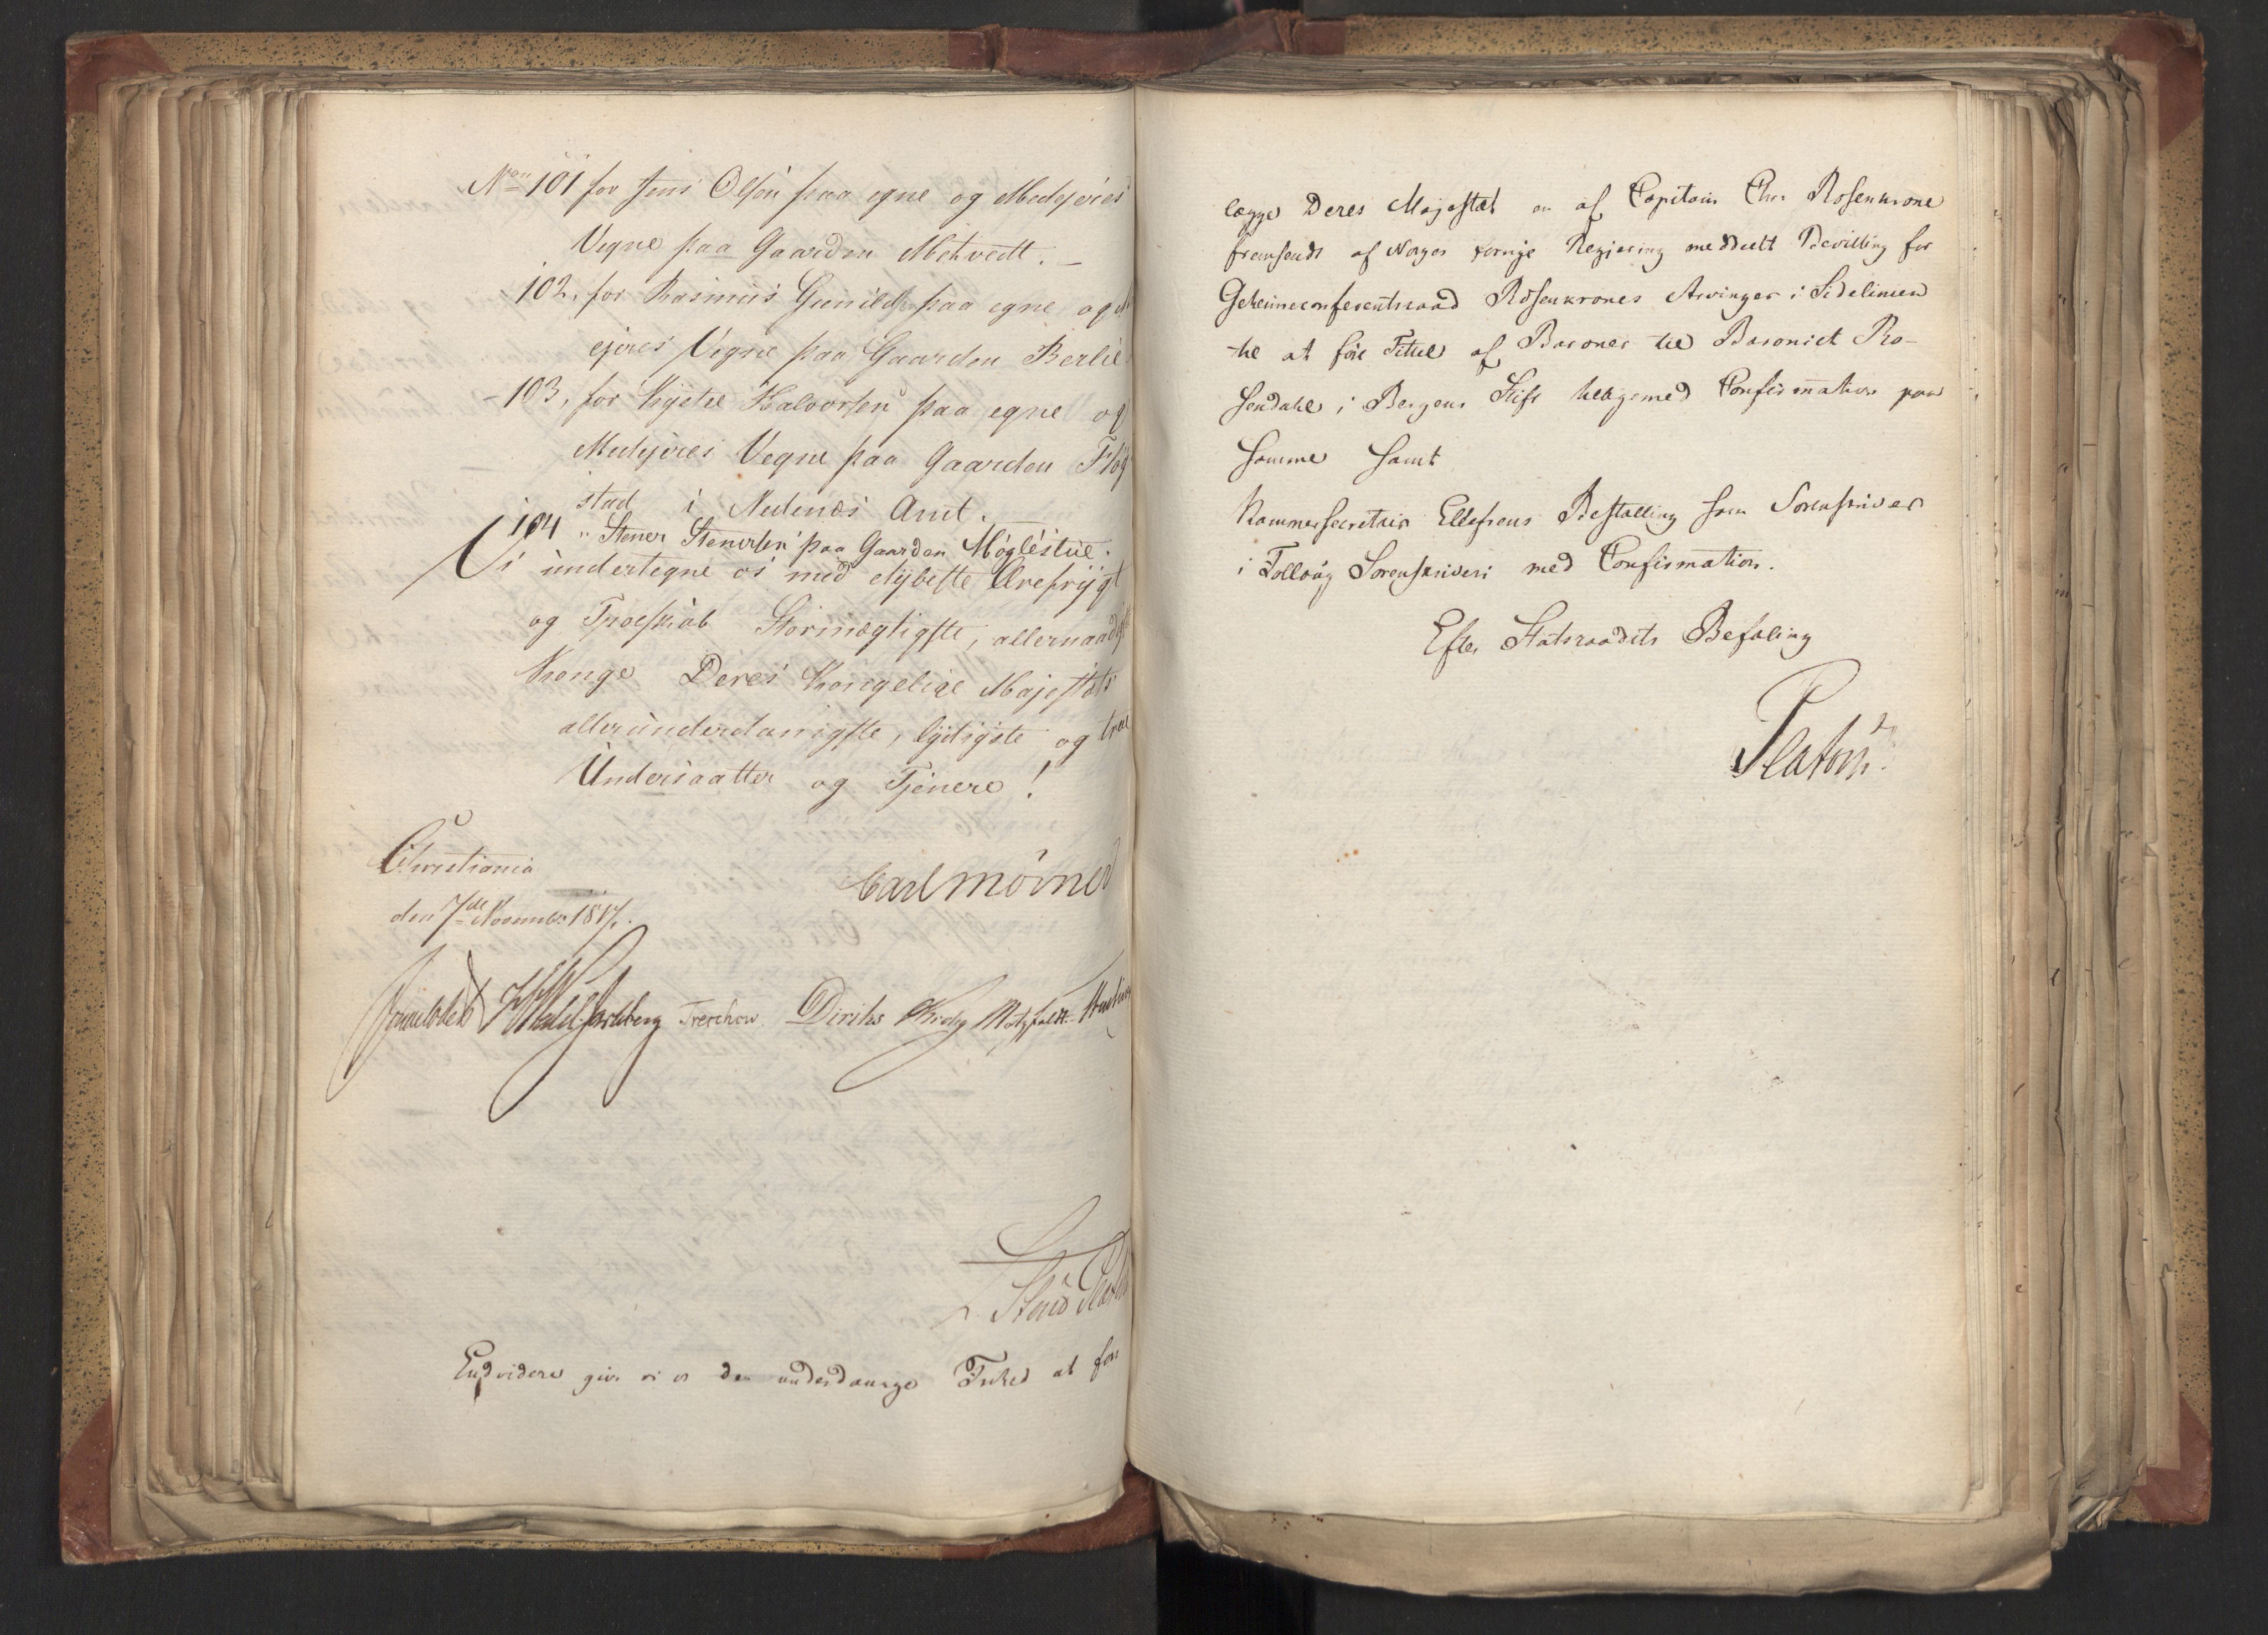 No 101 for Jens Olsen paa egne og Medejeres
Vegne paa Gaarden Metvedt. –
102, for Rasmus Gunilds paa egne og M
ejeres Vegne paa Gaarden Berlie
- 103, for Kjetil Halvorsen paa egne og
Medejeres Vegne paa Gaarden Fløg
stad i Nedenæs Amt.
104 " Stener Stenersen paa Gaarden Møglestue.
Vi undertegne os med dybeste Ærefrygt
og Troeskab Stormægtigste, allernaadigste
Konge Deres Kongelige Majestæts
allerunderdanigste, lydigste og troe
Undersaatter og Tjenere!
Christiania
den 7de November 1817.
Carl Mörner
Sommerhielm Wedel Jarlsberg Treschow Diriks Krieg Motzfeldt
Platou
Endvidere give vi os den underdanige Frihed at fore
lægge Deres Majestæt en af Capitain Chr. Rosenkrone
fremsendt af Norges forrige Regjering meddeelt Bevilling for
Geheimeconferentsraad Rosenkrones Arvinger i Sidelinien
til at føre Tittel af Baroner til Baroniet Ro-
sendahl i Bergens Stift tilligemed Confirmation paa
samme samt
Kammersecretair Ellefsens Bestalling som Sorenskriver
i Folloug Sorenskriveri med Confirmation.
Efter Statsraadets Befaling
Platou